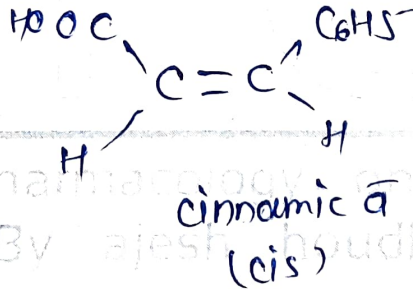 HOOC C6H5
C=C
H H
cinnamic ā
(cis)